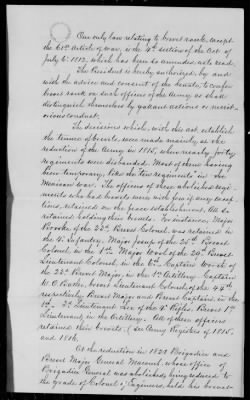 Our only law relating to brevet rank, except
the 61st Article of war, is the 4th section of the Act of
July 6. 1812, which has been so amended, as to read,
The President is hereby authorized, by and
with the advice and consent of the Senate, to confer
brevet rank on such officers of the Army as shall
distinguish themselves by gallant actions or merit-
orious conduct.
The decisions which, with this act, establish
the tenure of brevets were made mainly at the
reduction of the Army in 1815, when nearly forty
regiments were disbanded. Most of them having
been temporary, like the ten regiments in the
Mexican war. The officers of these abolished regi-
ments who had brevets were with few if any excep-
tions, retained on the peace establishment. All the
retained holding their brevets. For instance, Major
Brooke of the 23d. Brevet Colonel, was retained in
the 4th Infantry. Major Jesup of the 25th Brevet
Colonel in the 1st. Major Wool of the 29th Brevet
Lieutenant Colonel, in the 6th. Captain Worth of
the 23d. Brevet Major, in the Artillery. Captain
W. O. Butler, brevet Lieutenant Colonel of the 44th
respectively Brevet Major and Brevet Captain, in the
1st. 2d Lieutenant of the 4th Rifles, Brevet 1st
Lieutenant, in the Artillery. All of these officers
retained their brevets, (See Army Registers of 1815,
and 1816.
At the reduction in 1821 Brigadier and
Brevet Major General Macomb, whose office of
Brigadier General was abolished being reduced to
the grade of Colonel of Engineers, held his brevet